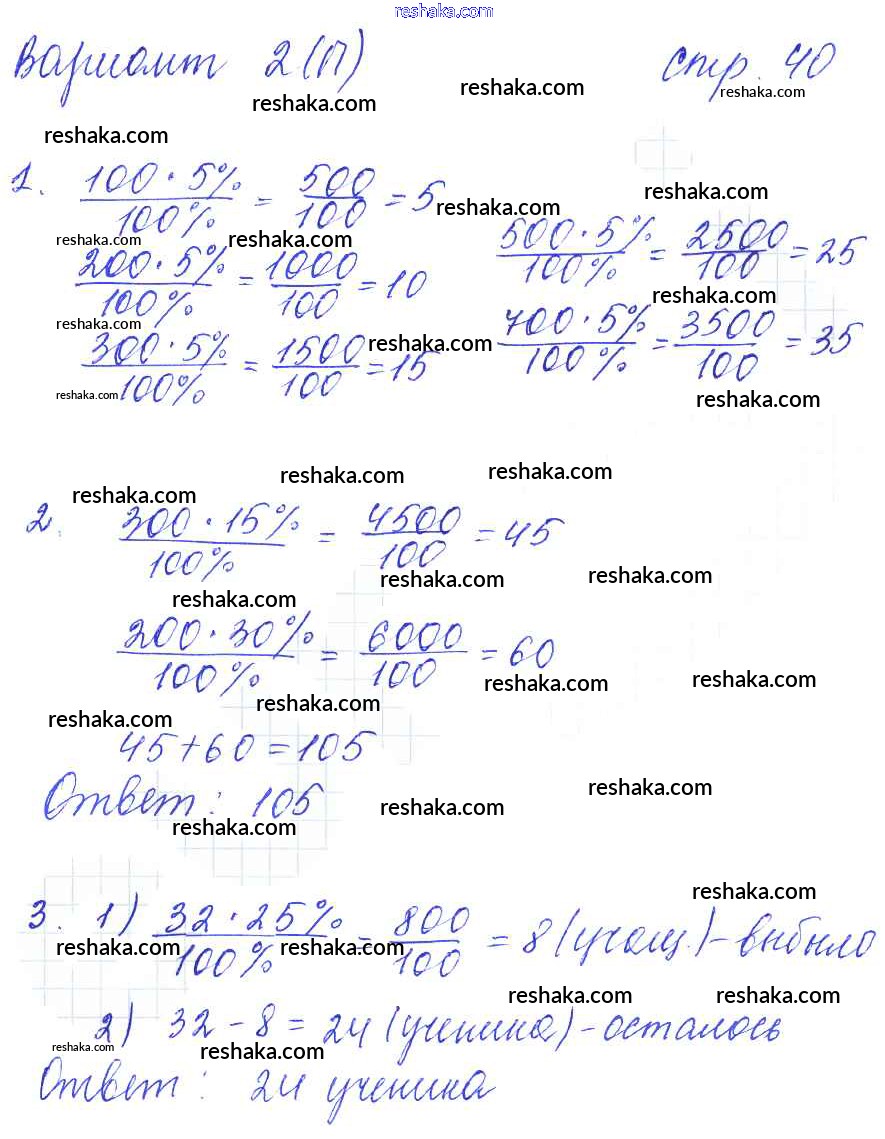 reshaka.com
Вариант 2(П) стр. 40
reshaka.com reshaka.com reshaka.com
reshaka.com
1. 100·5%/100% = 500/100 = 5
reshaka.com reshaka.com
reshaka.com reshaka.com
500·5%/100% = 2500/100 = 25
200·5%/100% = 1000/100 = 10
reshaka.com reshaka.com
700·5%/100% = 3500/100 = 35
300·5%/100% = 1500/100 = 15
reshaka.com reshaka.com reshaka.com
reshaka.com reshaka.com reshaka.com
2. 300·15%/100% = 4500/100 = 45
reshaka.com reshaka.com reshaka.com
200·30%/100% = 6000/100 = 60
reshaka.com reshaka.com reshaka.com reshaka.com
45+60=105
Ответ: 105
reshaka.com reshaka.com reshaka.com
reshaka.com
3. 1) 32·25%/100% = 800/100 = 8 (учащ.) - выбыло
reshaka.com reshaka.com
reshaka.com reshaka.com
2) 32-8=24 (ученика) - осталось
reshaka.com reshaka.com
Ответ: 24 ученика